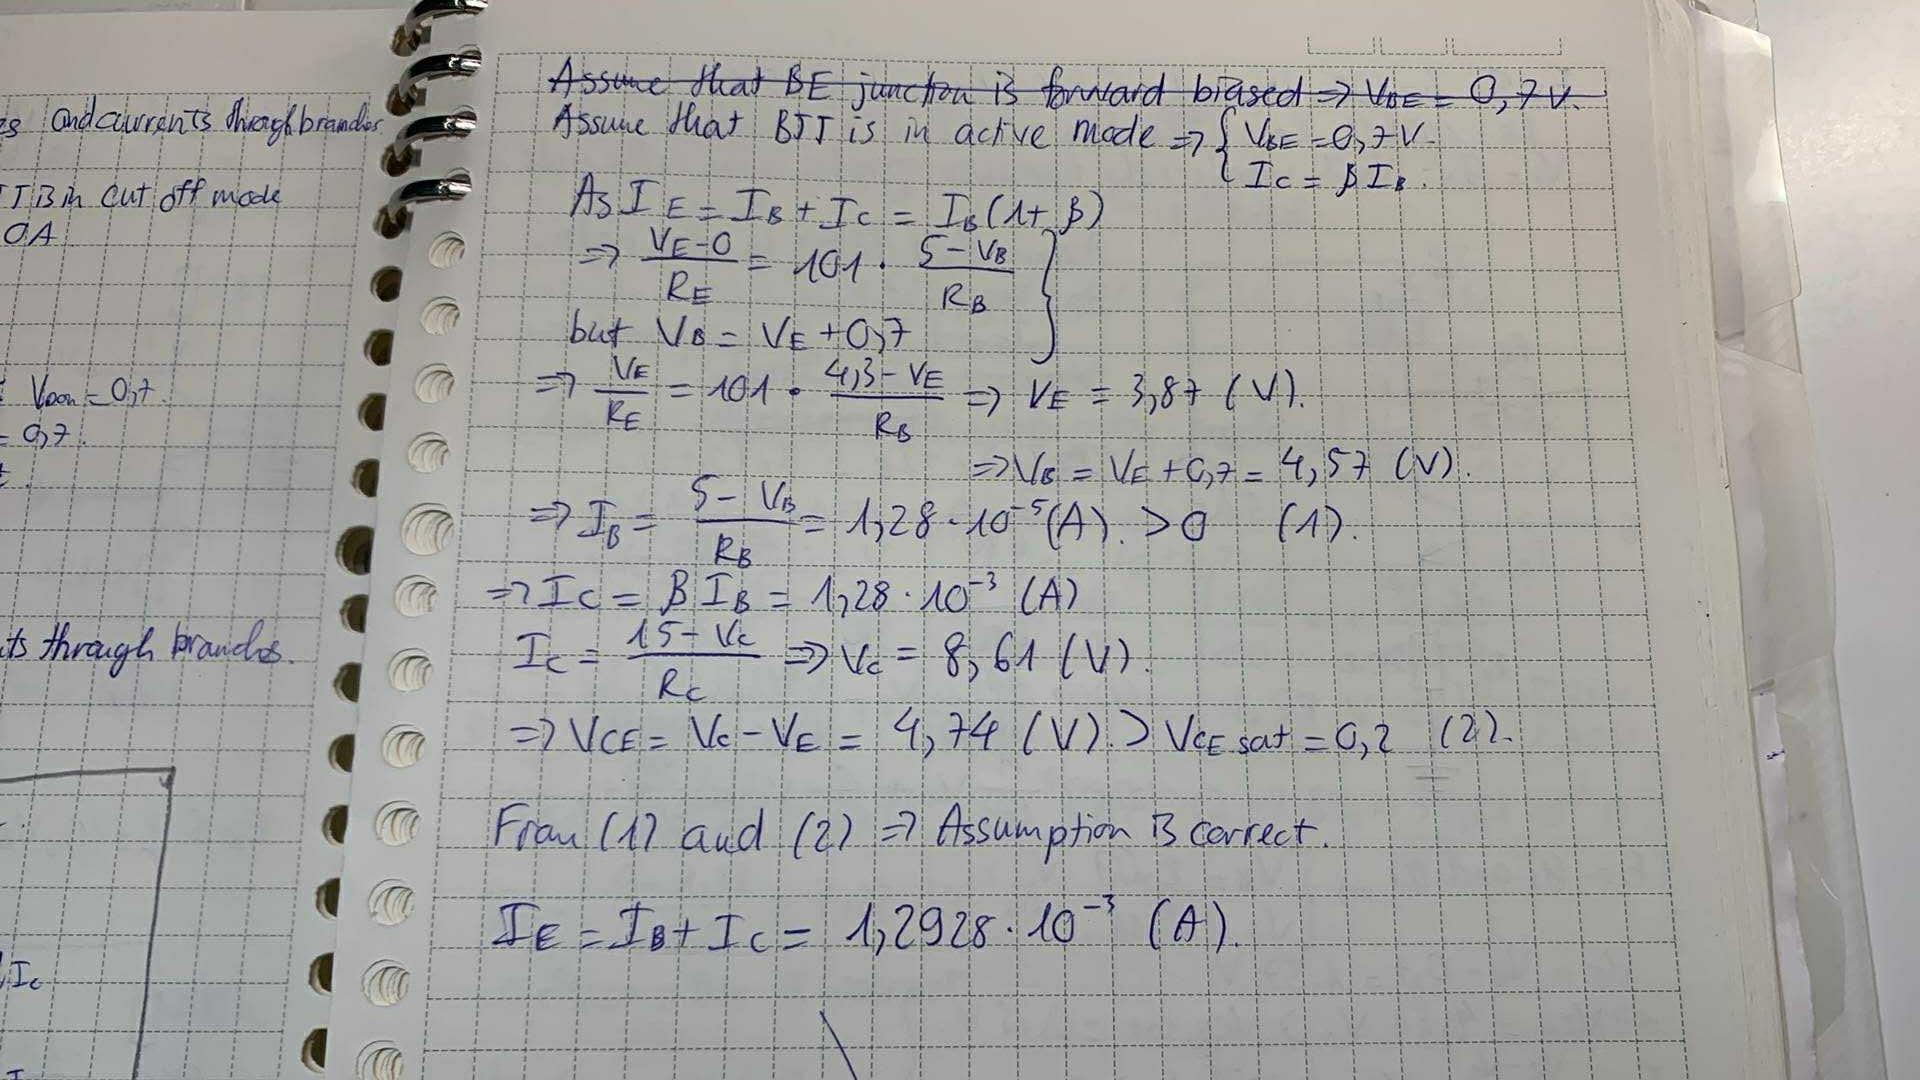 and currents through branches
is in cut off mode
0A
VDon = 0,7.
= 0,7.
ts through branches.
Ic
Assume that BE junction is forward biased => VBE = 0,7 V.
Assume that BJT is in active mode => { VBE = 0,7 V.
Ic = βIB.
As IE = IB + Ic = IB(1+β)
=> (VE-0)/RE = 101 · (5-VB)/RB
but VB = VE + 0,7
=> VE/RE = 101 · (4,3-VE)/RB => VE = 3,87 (V).
=> VB = VE + 0,7 = 4,57 (V).
=> IB = (5-VB)/RB = 1,28·10^-5 (A). > 0 (1).
=> Ic = βIB = 1,28·10^-3 (A)
Ic = (15-Vc)/Rc => Vc = 8,61 (V).
=> VCE = Vc - VE = 4,74 (V). > VCE sat = 0,2 (2).
From (1) and (2) => Assumption is correct.
IE = IB + Ic = 1,2928·10^-3 (A).